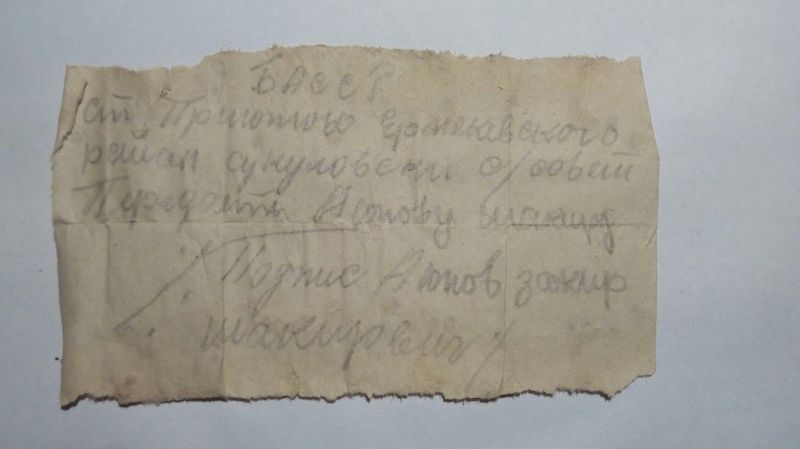 БАССР
ст Приютово Ермекевского
район сукуловски с/совет
Передати Аюпову шакир
Подпис Аюпов закир
шакирович